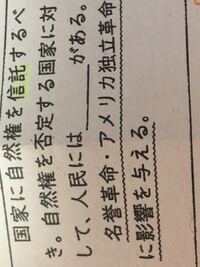 国家に自然権を信託するべ
き。自然権を否定する国家に対
して、人民には＿＿＿がある。
名誉革命・アメリカ独立革命
に影響を与える。